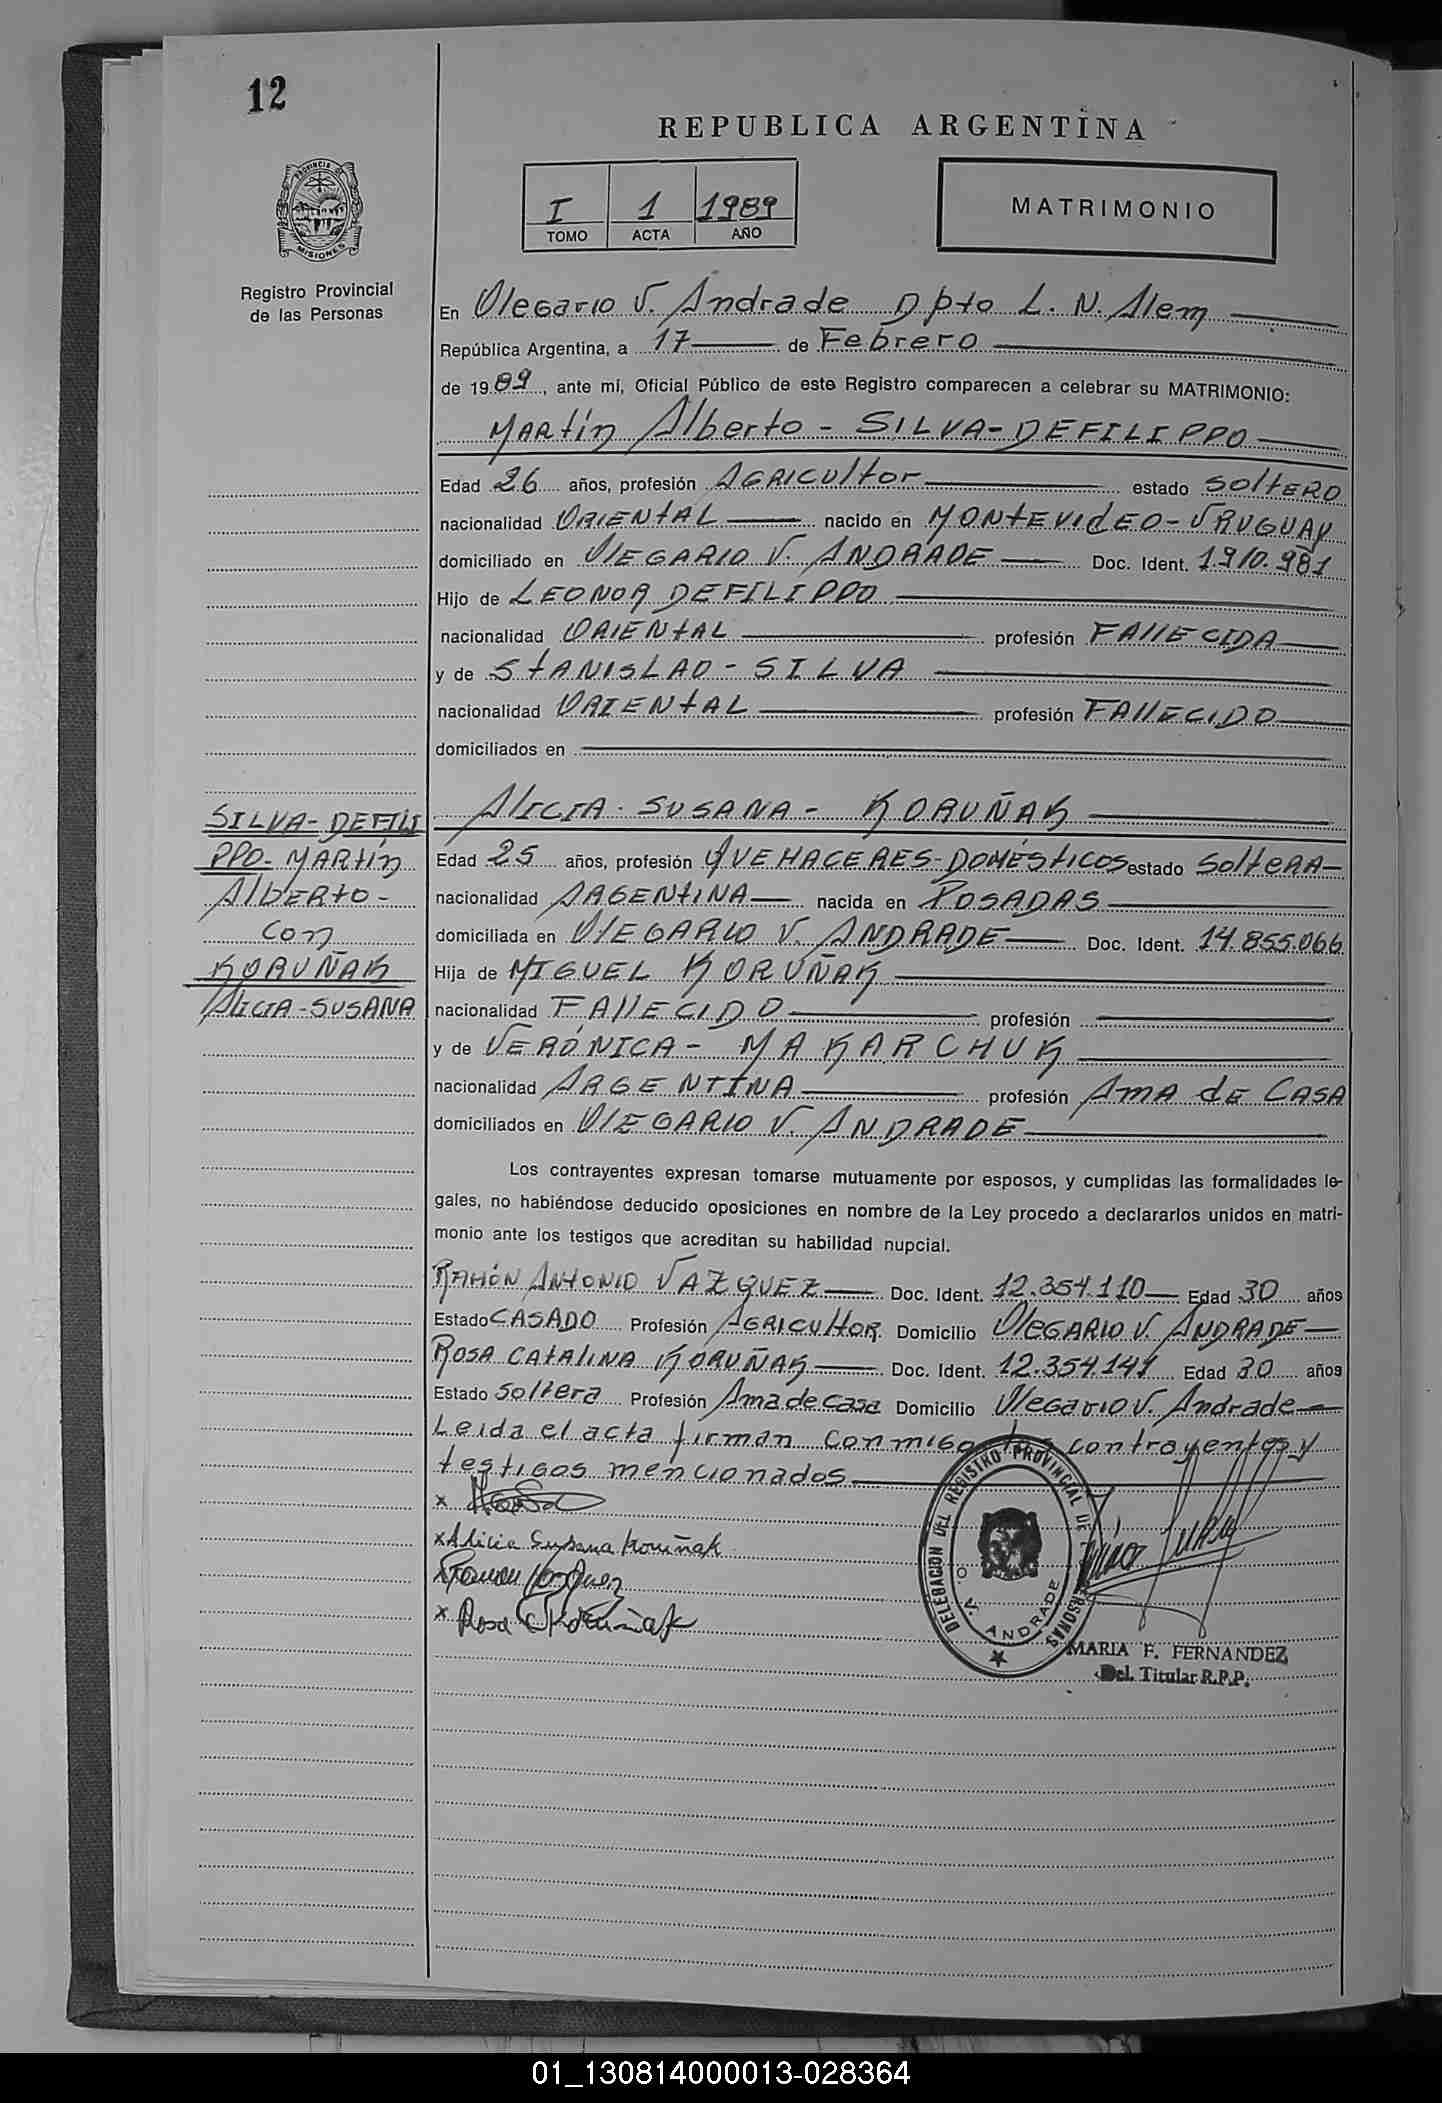 12
REPUBLICA ARGENTINA
PROVINCIA DE
MISIONES
I 1 1989
TOMO ACTA AÑO
MATRIMONIO
Registro Provincial
de las Personas
En Olegario V. Andrade Dpto L. N. Alem
República Argentina, a 17 de Febrero
de 1989, ante mí, Oficial Público de este Registro comparecen a celebrar su MATRIMONIO:
Martín Alberto - SILVA-DEFILIPPO
Edad 26 años, profesión AGRICULTOR estado SOLTERO
nacionalidad ORIENTAL nacido en MONTEVIDEO - URUGUAY
domiciliado en OLEGARIO V. ANDRADE Doc. Ident. 1.910.981
Hijo de LEONOR DEFILIPPO
nacionalidad ORIENTAL profesión FALLECIDA
y de STANISLAO - SILVA
nacionalidad ORIENTAL profesión FALLECIDO
domiciliados en
ALICIA - SUSANA - KORUÑAK
Edad 25 años, profesión QUEHACERES-DOMÉSTICOS estado SOLTERA
nacionalidad ARGENTINA nacida en POSADAS
domiciliada en OLEGARIO V. ANDRADE Doc. Ident. 14.855.066
Hija de MIGUEL KORUÑAK
nacionalidad FALLECIDO profesión
y de VERÓNICA - MAKARCHUK
nacionalidad ARGENTINA profesión AMA DE CASA
domiciliados en OLEGARIO V. ANDRADE
SILVA-DEFILI
PPO- MARTÍN
ALBERTO-
CON
KORUÑAK
ALICIA-SUSANA
Los contrayentes expresan tomarse mutuamente por esposos, y cumplidas las formalidades le-
gales, no habiéndose deducido oposiciones en nombre de la Ley procedo a declararlos unidos en matri-
monio ante los testigos que acreditan su habilidad nupcial.
RAMÓN ANTONIO VAZQUEZ Doc. Ident. 12.354.110 Edad 30 años
Estado CASADO Profesión AGRICULTOR Domicilio OLEGARIO V. ANDRADE
ROSA CATALINA KORUÑAK Doc. Ident. 12.354.141 Edad 30 años
Estado soltera Profesión Ama de casa Domicilio Olegario V. Andrade
Leida el acta firman conmigo los contrayentes y
testigos mencionados
x
x Alicia Susana Koruñak
x Ramon Vazquez
x Rosa C Koruñak
DELEGACION DEL REGISTRO PROVINCIAL DE PERSONAS
O. V. ANDRADE
MARIA F. FERNANDEZ
Del. Titular R.P.P.
01_130814000013-028364